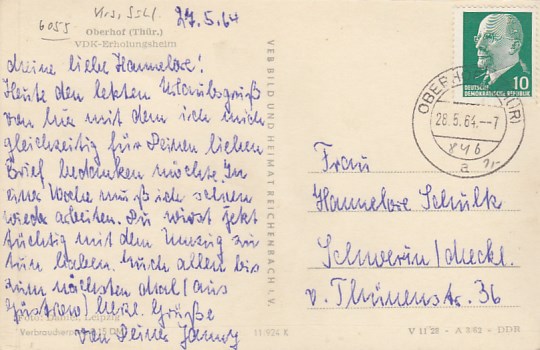 6055
27.5.64
Oberhof (Thür.)
VDK-Erholungsheim
Meine liebe Hannelore!
Heute den letzten Urlaubsgruß
von hier mit dem ich mich
gleichzeitig für Deinen lieben
Brief bedanken möchte. In
einer Woche muß ich schon
wieder arbeiten. Du wirst jetzt
tüchtig mit dem Umzug zu
tun haben. Euch allen bis
zum nächsten Mal (aus
Güstrow) herzl. Grüße
von Deiner
Foto: Daniel, Leipzig
Verbraucherpreis 0,15 DM
11/924 K
VEB BILD UND HEIMAT REICHENBACH I. V.
DEUTSCHE
DEMOKRATISCHE REPUBLIK
10
OBERHOF (THÜR)
28.5.64.–7
a
Frau
Hannelore Schulk
Schwerin/Meckl.
v. Thünenstr. 36
V 11 28 - A 882 - DDR